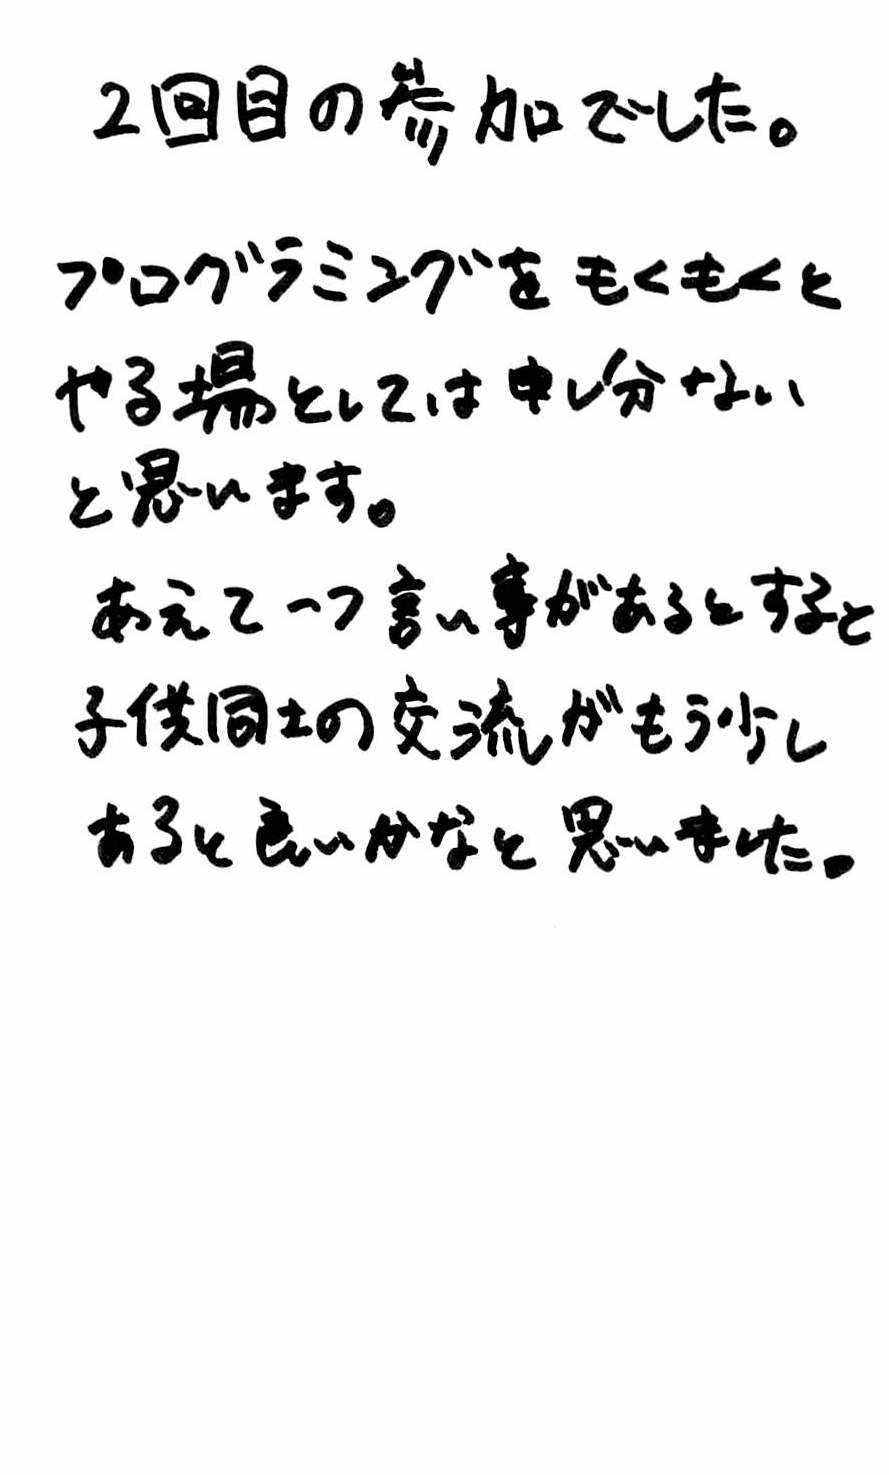 2回目の参加でした。
プログラミングをもくもくと
やる場としては申し分ない
と思います。
あえて一つ言い事があるとすると
子供同士の交流がもう少し
あると良いかなと思いました。